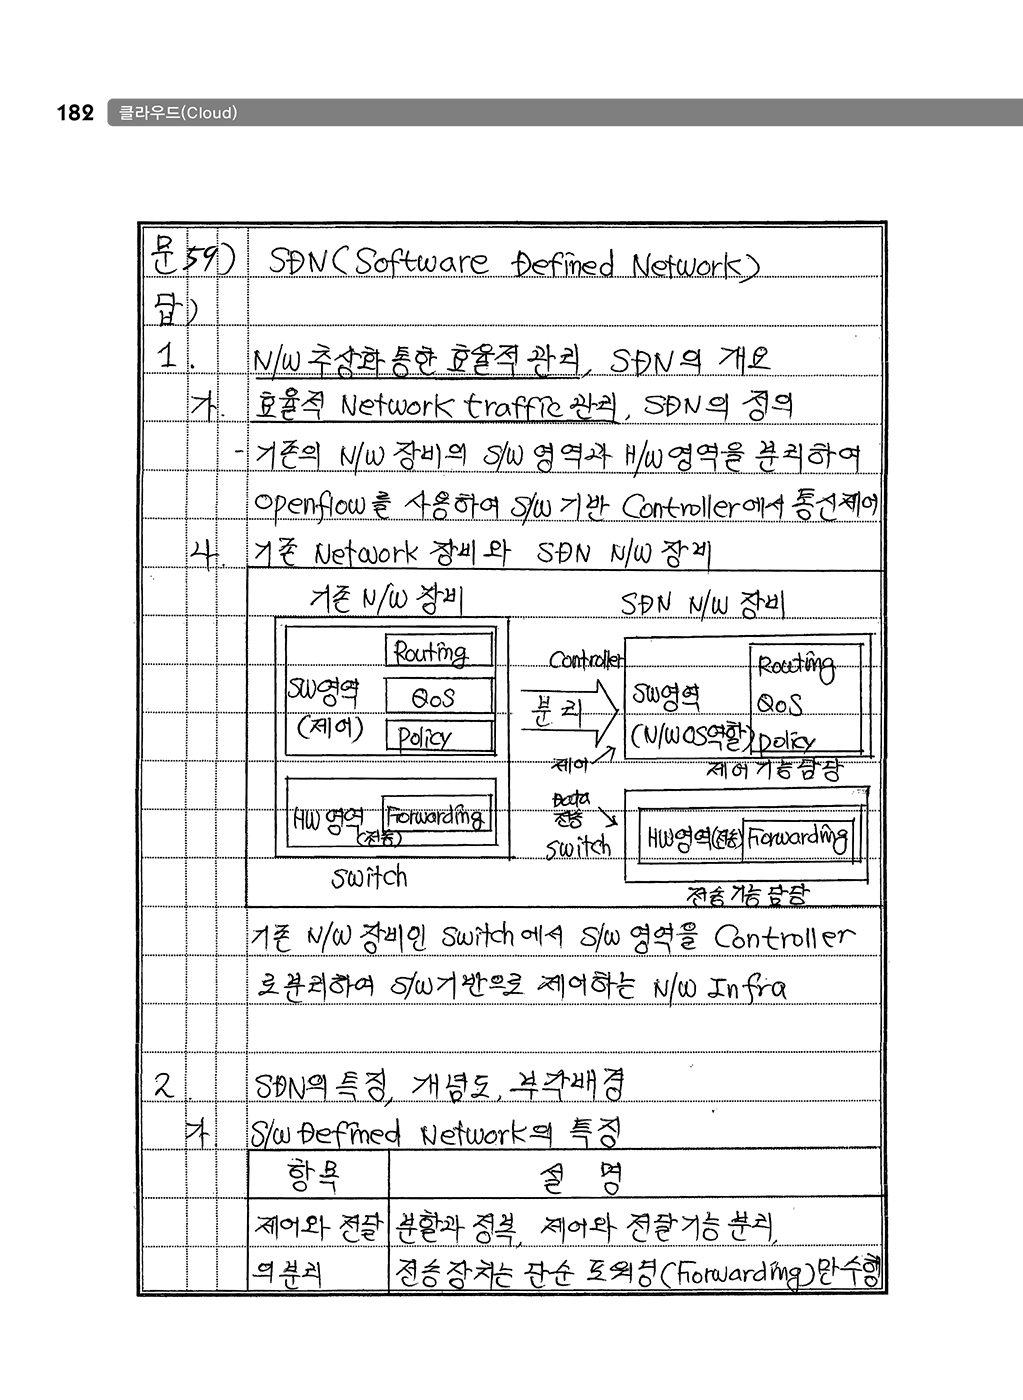 182 클라우드(Cloud)
문 59) SDN(Software Defined Network)
답)
1. N/W 추상화 통한 효율적 관리, SDN의 개요
가. 효율적 Network traffic 관리, SDN의 정의
- 기존의 N/W 장비의 S/W 영역과 H/W 영역을 분리하여
Openflow를 사용하여 S/W 기반 Controller에서 통신제어
나. 기존 Network 장비와 SDN N/W 장비
기존 N/W 장비
SW영역
(제어)
Routing
QoS
Policy
HW영역
(전송)
Forwarding
Switch
분리
SDN N/W 장비
Controller
제어
SW영역
(N/W OS역할)
Routing
QoS
Policy
제어 기능 담당
Data
전송
Switch
HW영역(전송) Forwarding
전송 기능 담당
기존 N/W 장비인 Switch에서 S/W 영역을 Controller
로 분리하여 S/W기반으로 제어하는 N/W Infra
2. SDN의 특징, 개념도, 부각배경
가. S/W Defined Network의 특징
항목 설 명
제어와 전달 분할과 정복, 제어와 전달기능 분리,
의 분리 전송장치는 단순 포워딩(Forwarding)만 수행